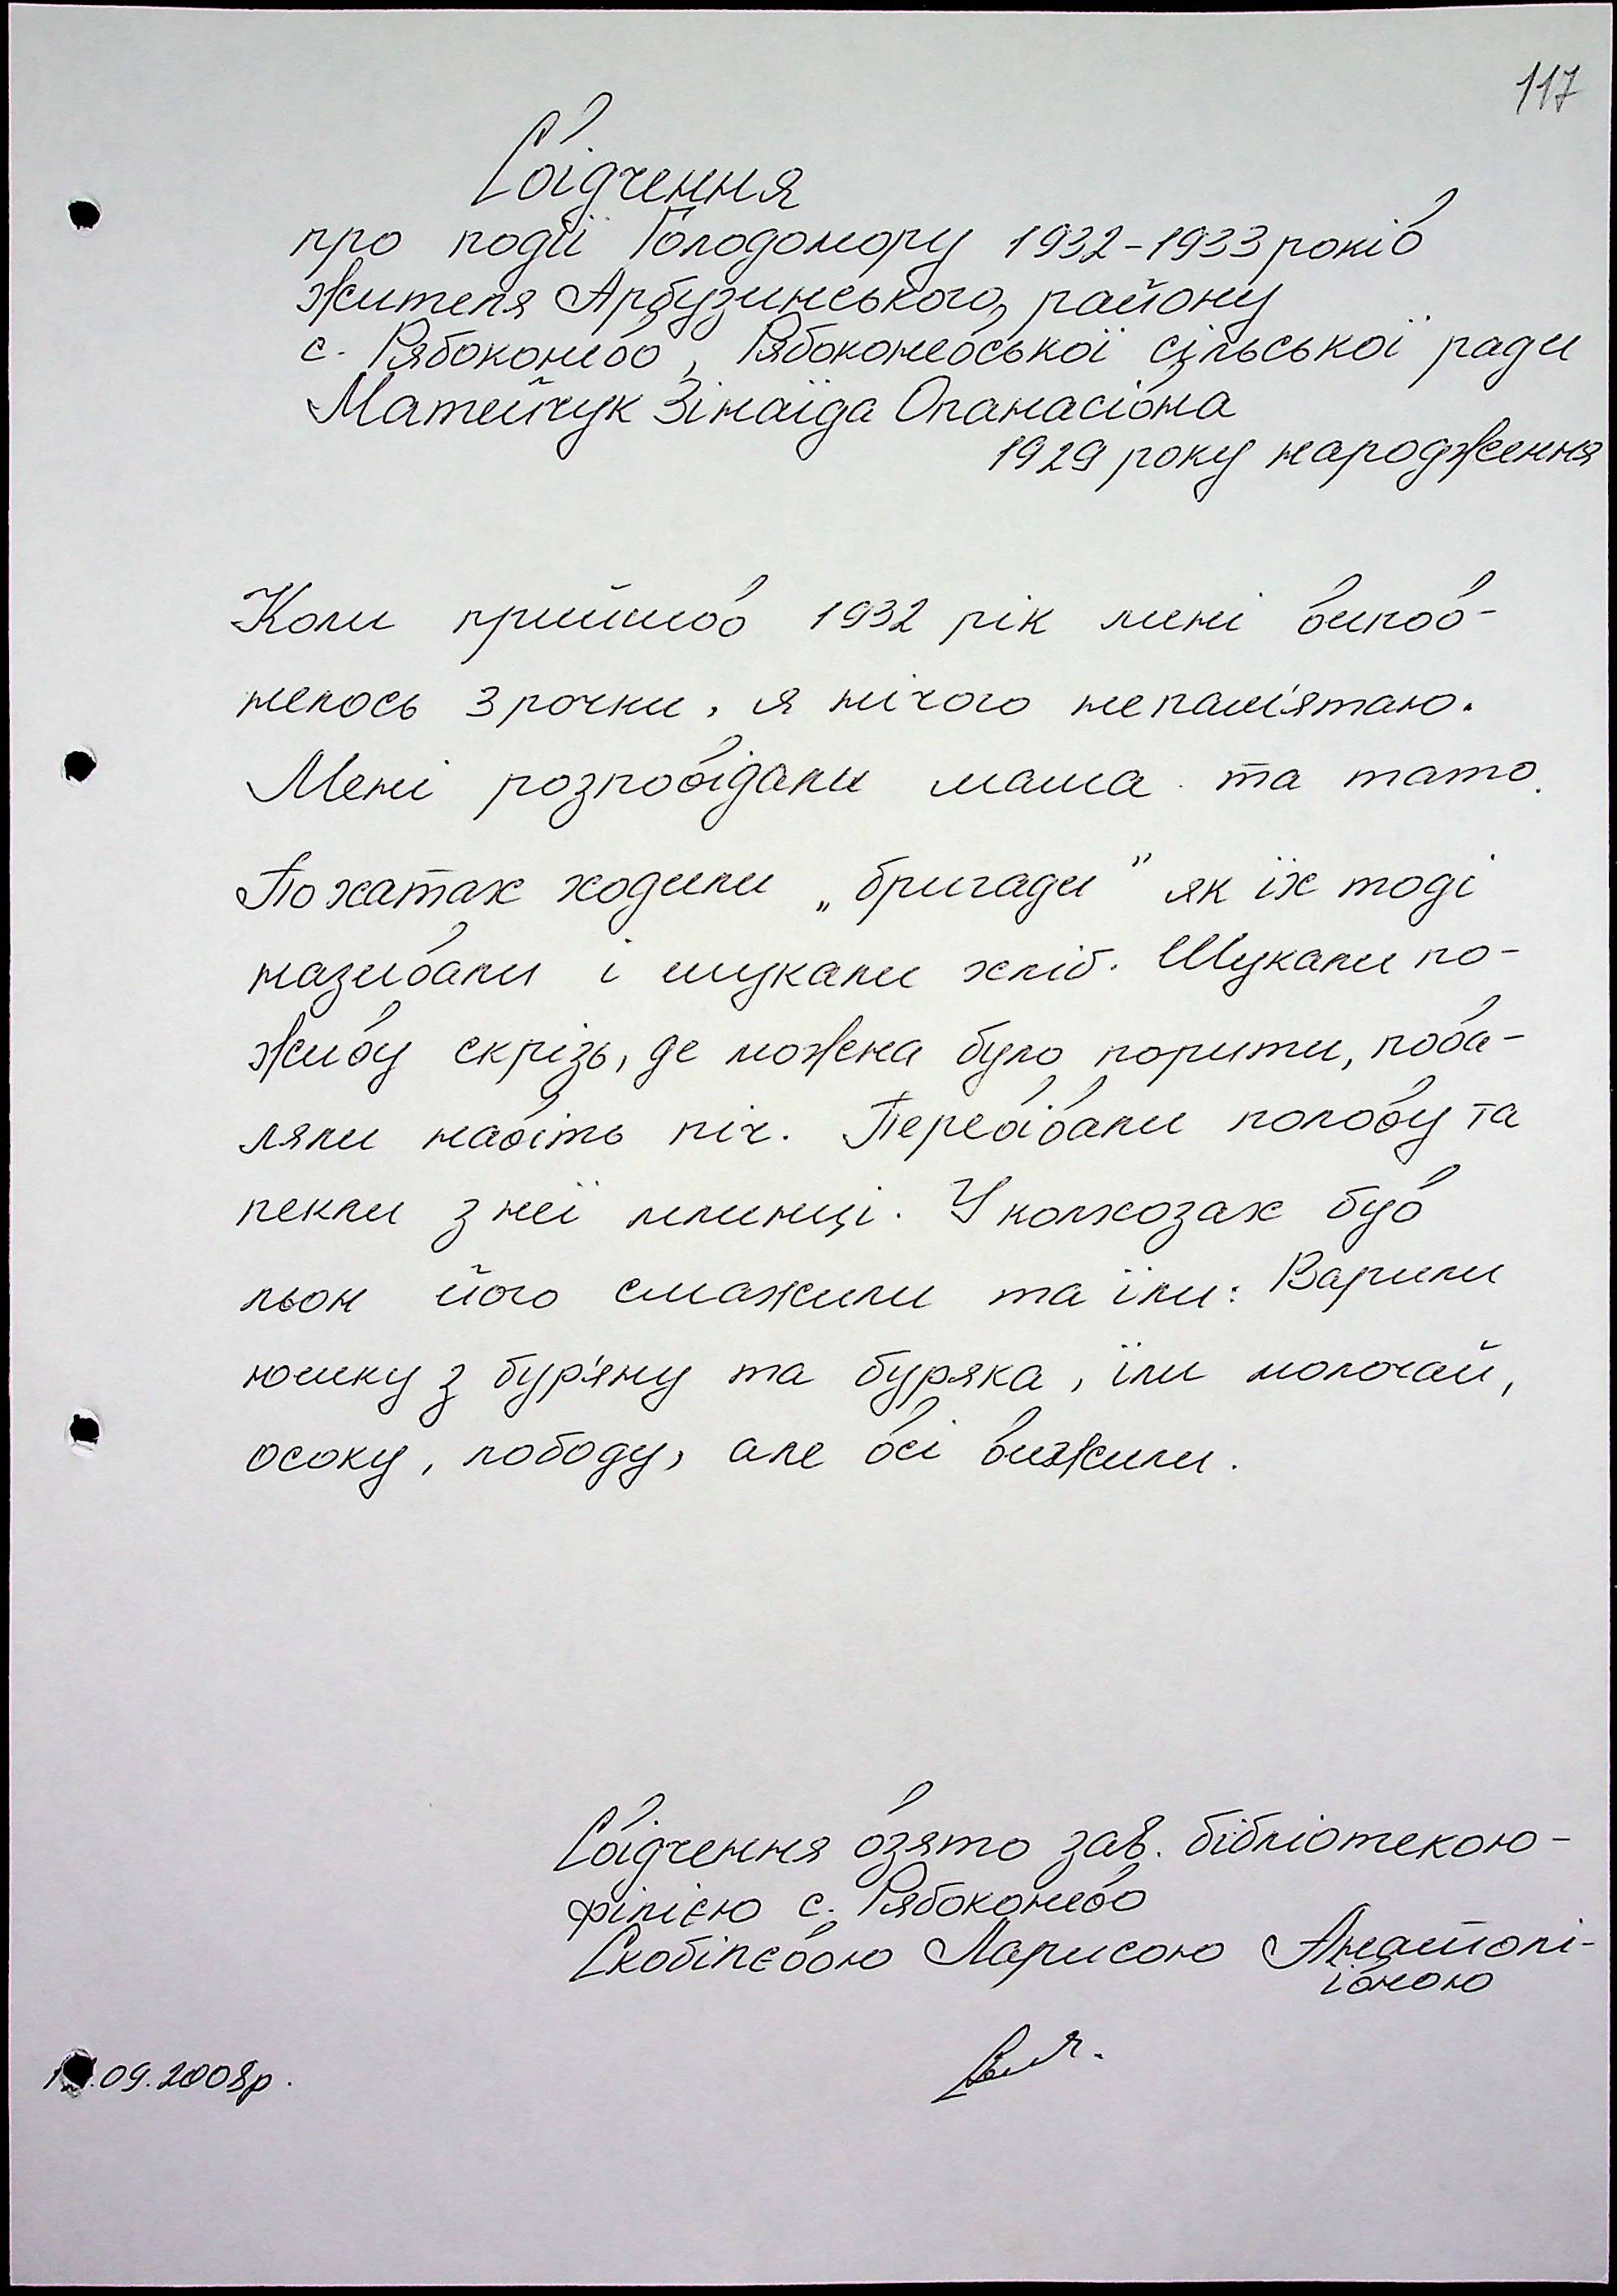 117
Свідчення
про події Голодомору 1932-1933 років
жителя Арбузинського району
с. Рябоконево, Рябоконевської сільської ради
Матейчук Зінаїда Опанасівна
1929 року народження
Коли прийшов 1932 рік мині випов-
нелось 3 рочки, я нічого непам'ятаю.
Мені розповідали мама та тато.
По хатах ходили „бригади" як їх тоді
називали і шукали хліб. Шукали по-
живу скрізь, де можна було порити, пова-
ляли навіть піч. Перевівали полову та
пекли з неї млинці. У колхозах був
льон його смажили та їли. Варили
юшку з бур'яну та буряка, їли молочай,
осоку, лободу, але всі вижили.
Свідчення взято зав. бібліотекою-
філією с. Рябоконево
Скобілєвою Ларисою Анатолі-
івною
.09.2008р.